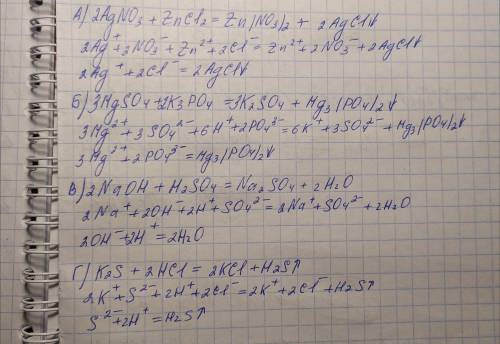 А) 2AgNO3 + ZnCl2 = Zn(NO3)2 + 2AgCl↓
2Ag⁺ + 2NO3⁻ + Zn²⁺ + 2Cl⁻ = Zn²⁺ + 2NO3⁻ + 2AgCl↓
2Ag⁺ + 2Cl⁻ = 2AgCl↓
Б) 3MgSO4 + 2K3PO4 = 3K2SO4 + Mg3(PO4)2↓
3Mg²⁺ + 3SO4²⁻ + 6H⁺ + 2PO4³⁻ = 6K⁺ + 3SO4²⁻ + Mg3(PO4)2↓
3Mg²⁺ + 2PO4³⁻ = Mg3(PO4)2↓
В) 2NaOH + H2SO4 = Na2SO4 + 2H2O
2Na⁺ + 2OH⁻ + 2H⁺ + SO4²⁻ = 2Na⁺ + SO4²⁻ + 2H2O
2OH⁻ + 2H⁺ = 2H2O
Г) K2S + 2HCl = 2KCl + H2S↑
2K⁺ + S²⁻ + 2H⁺ + 2Cl⁻ = 2K⁺ + 2Cl⁻ + H2S↑
S²⁻ + 2H⁺ = H2S↑